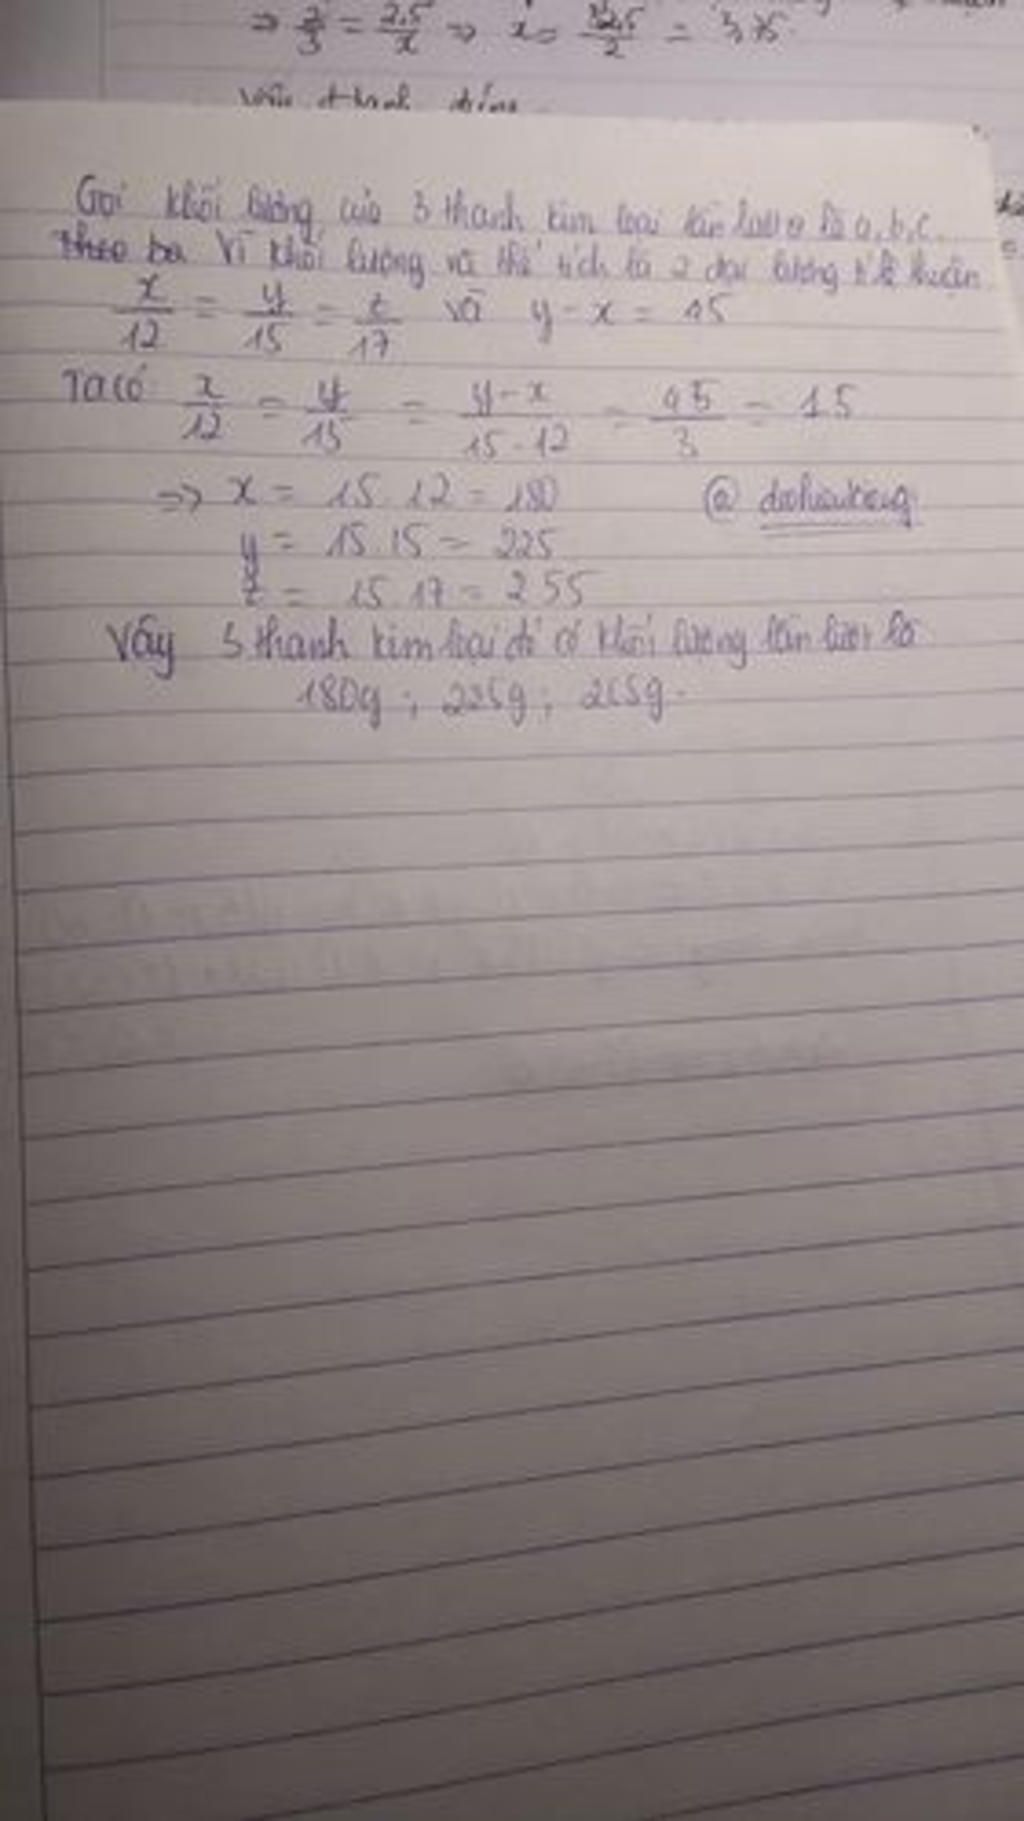 ⇒ 2/3 = 2,5/x ⇒ x = /2 = 3,75
Gọi khối lượng của 3 thanh kim loại lần lượt là a, b, c.
theo ba Vì khối lượng và thể tích là 2 đại lượng tỉ lệ thuận
x/12 = y/15 = z/17 và y - x = 45
Ta có x/12 = y/15 = y-x/15-12 = 45/3 = 15
=> x = 15.12 = 180 @
y = 15.15 = 225
z = 15.17 = 255
Vậy 3 thanh kim loại đó có khối lượng lần lượt là
180g; 225g; 255g.